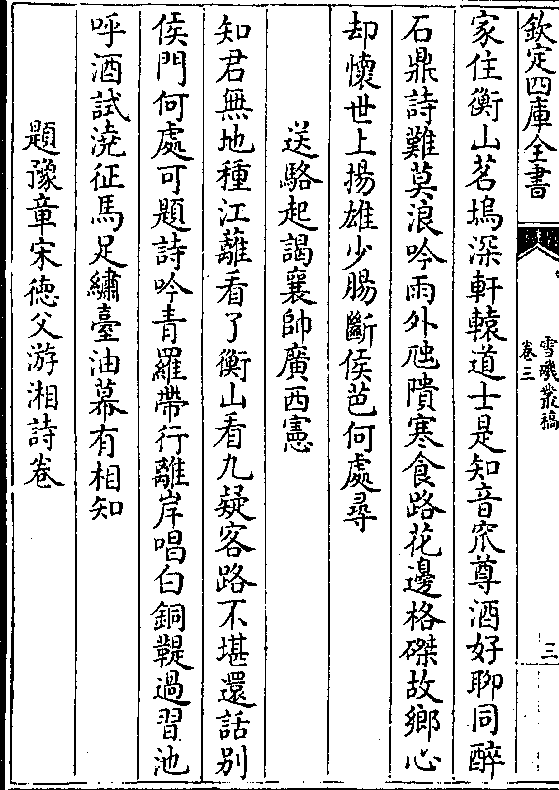 欽定四庫全書
雪磯叢稿
卷三
三
家住衡山茗塢深軒轅道士是知音窊尊酒好聊同醉
石鼎詩難莫浪吟雨外虺隤寒食路花邊格磔故鄉心
却懷世上揚雄少腸斷侯芭何處尋
送駱起謁襄帥廣西憲
知君無地種江蘺看了衡山看九疑客路不堪還話别
侯門何處可題詩吟青羅帶行離岸唱白銅鞮過習池
呼酒試澆征馬足繡臺油幕有相知
題豫章宋徳父游湘詩卷